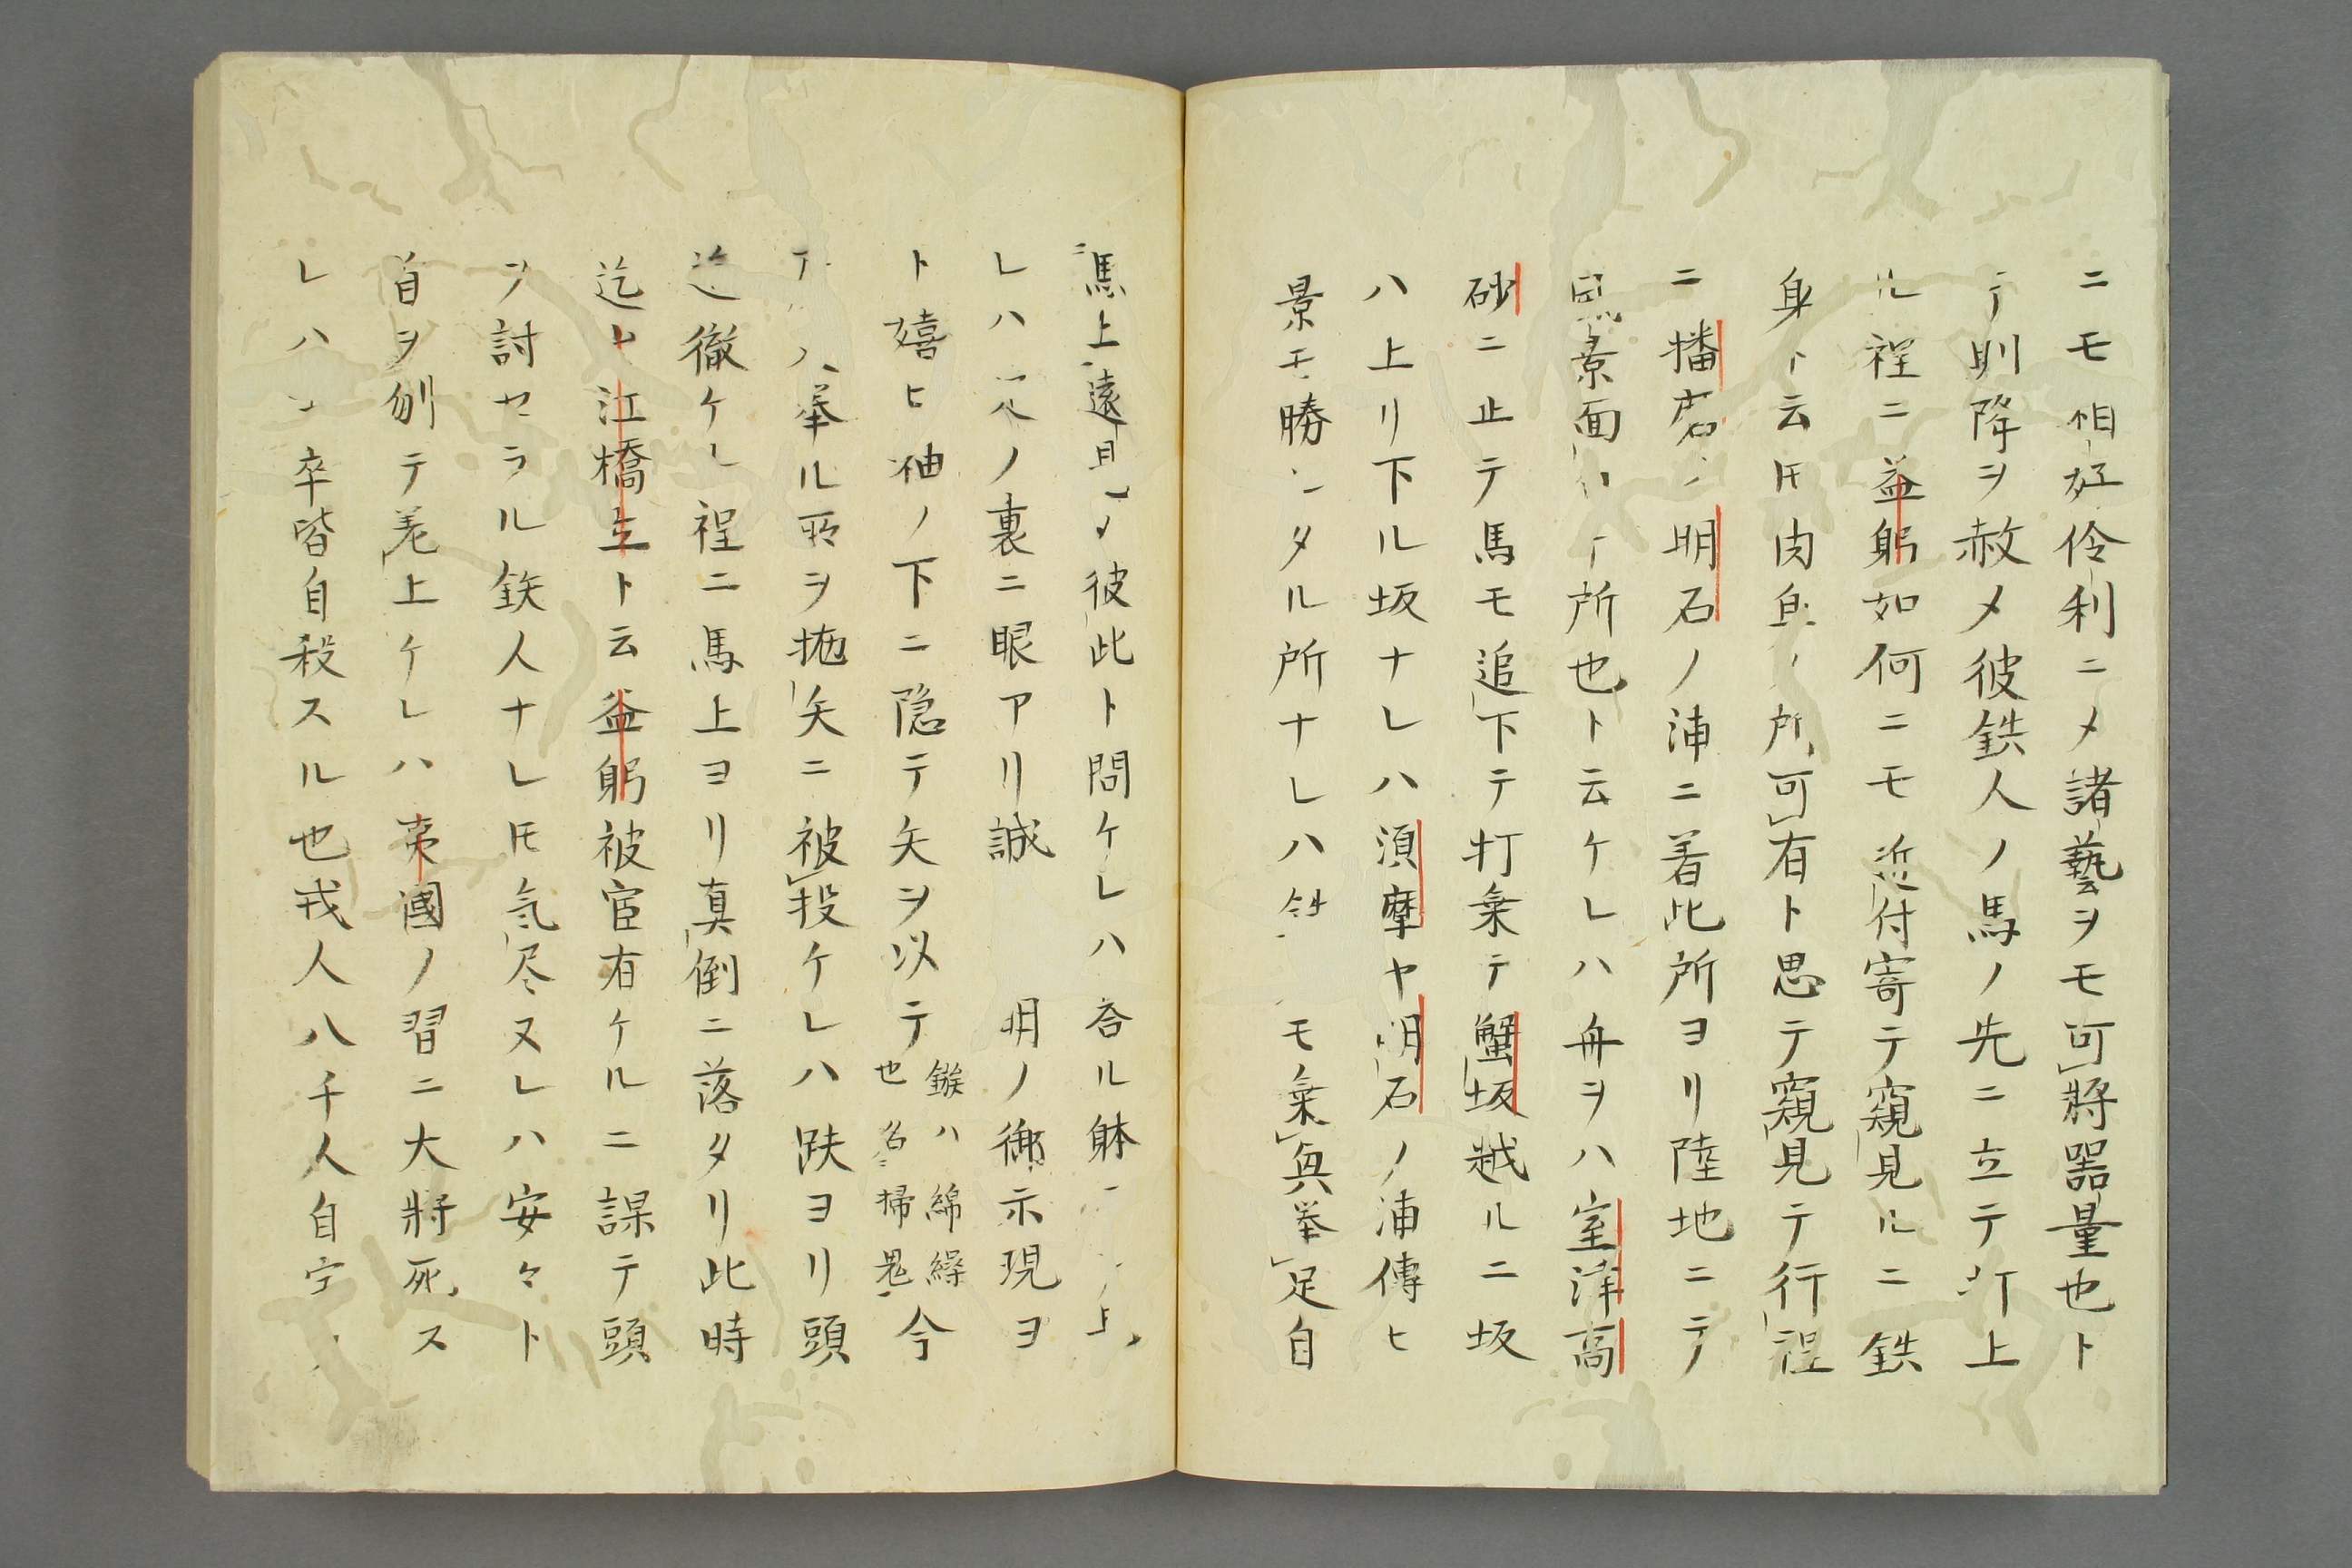 ニモ相好伶利ニメ諸藝ヲモ可將器量也ト
テ則降ヲ赦メ彼鉄人ノ馬ノ先ニ立テ打上
ル程ニ益躬如何ニモ近付寄テ窺見ルニ鉄
身ト云㠪肉身ノ所可有ト思テ窺見テ行程
ニ播磨ノ明石ノ浦ニ着此所ヨリ陸地ニテ
景面ト所也ト云ケレハ舟ヲハ室津高
砂ニ止テ馬モ追下テ打乗テ蟹坂越ルニ坂
ハ上リ下ル坂ナレハ須摩ヤ明石ノ浦傳ヒ
景モ勝レタル所ナレハ鉄モ乗輿挙足自
馬上遠見メ彼此ト問ケレハ答ル躰上
レハ足ノ裏ニ眼アリ誠明ノ御示現ヨ
ト嬉ヒ袖ノ下ニ隠テ矢ヲ以テ鏃ハ綿繰也名掃鬼今
ハ挙ル所ヲ抛矢ニ被投ケレハ趺ヨリ頭
迄徹ケレ程ニ馬上ヨリ真倒ニ落タリ此時
迄ト江橋立ト云益躬被官有ケルニ謀テ頭
ヲ討セラル鉄人ナレ㠪気尽ヌレハ安々ト
首ヲ刎テ差上ケレハ夷國ノ習ニ大將死ス
レハ卒皆自殺スル也戎人八千人自害